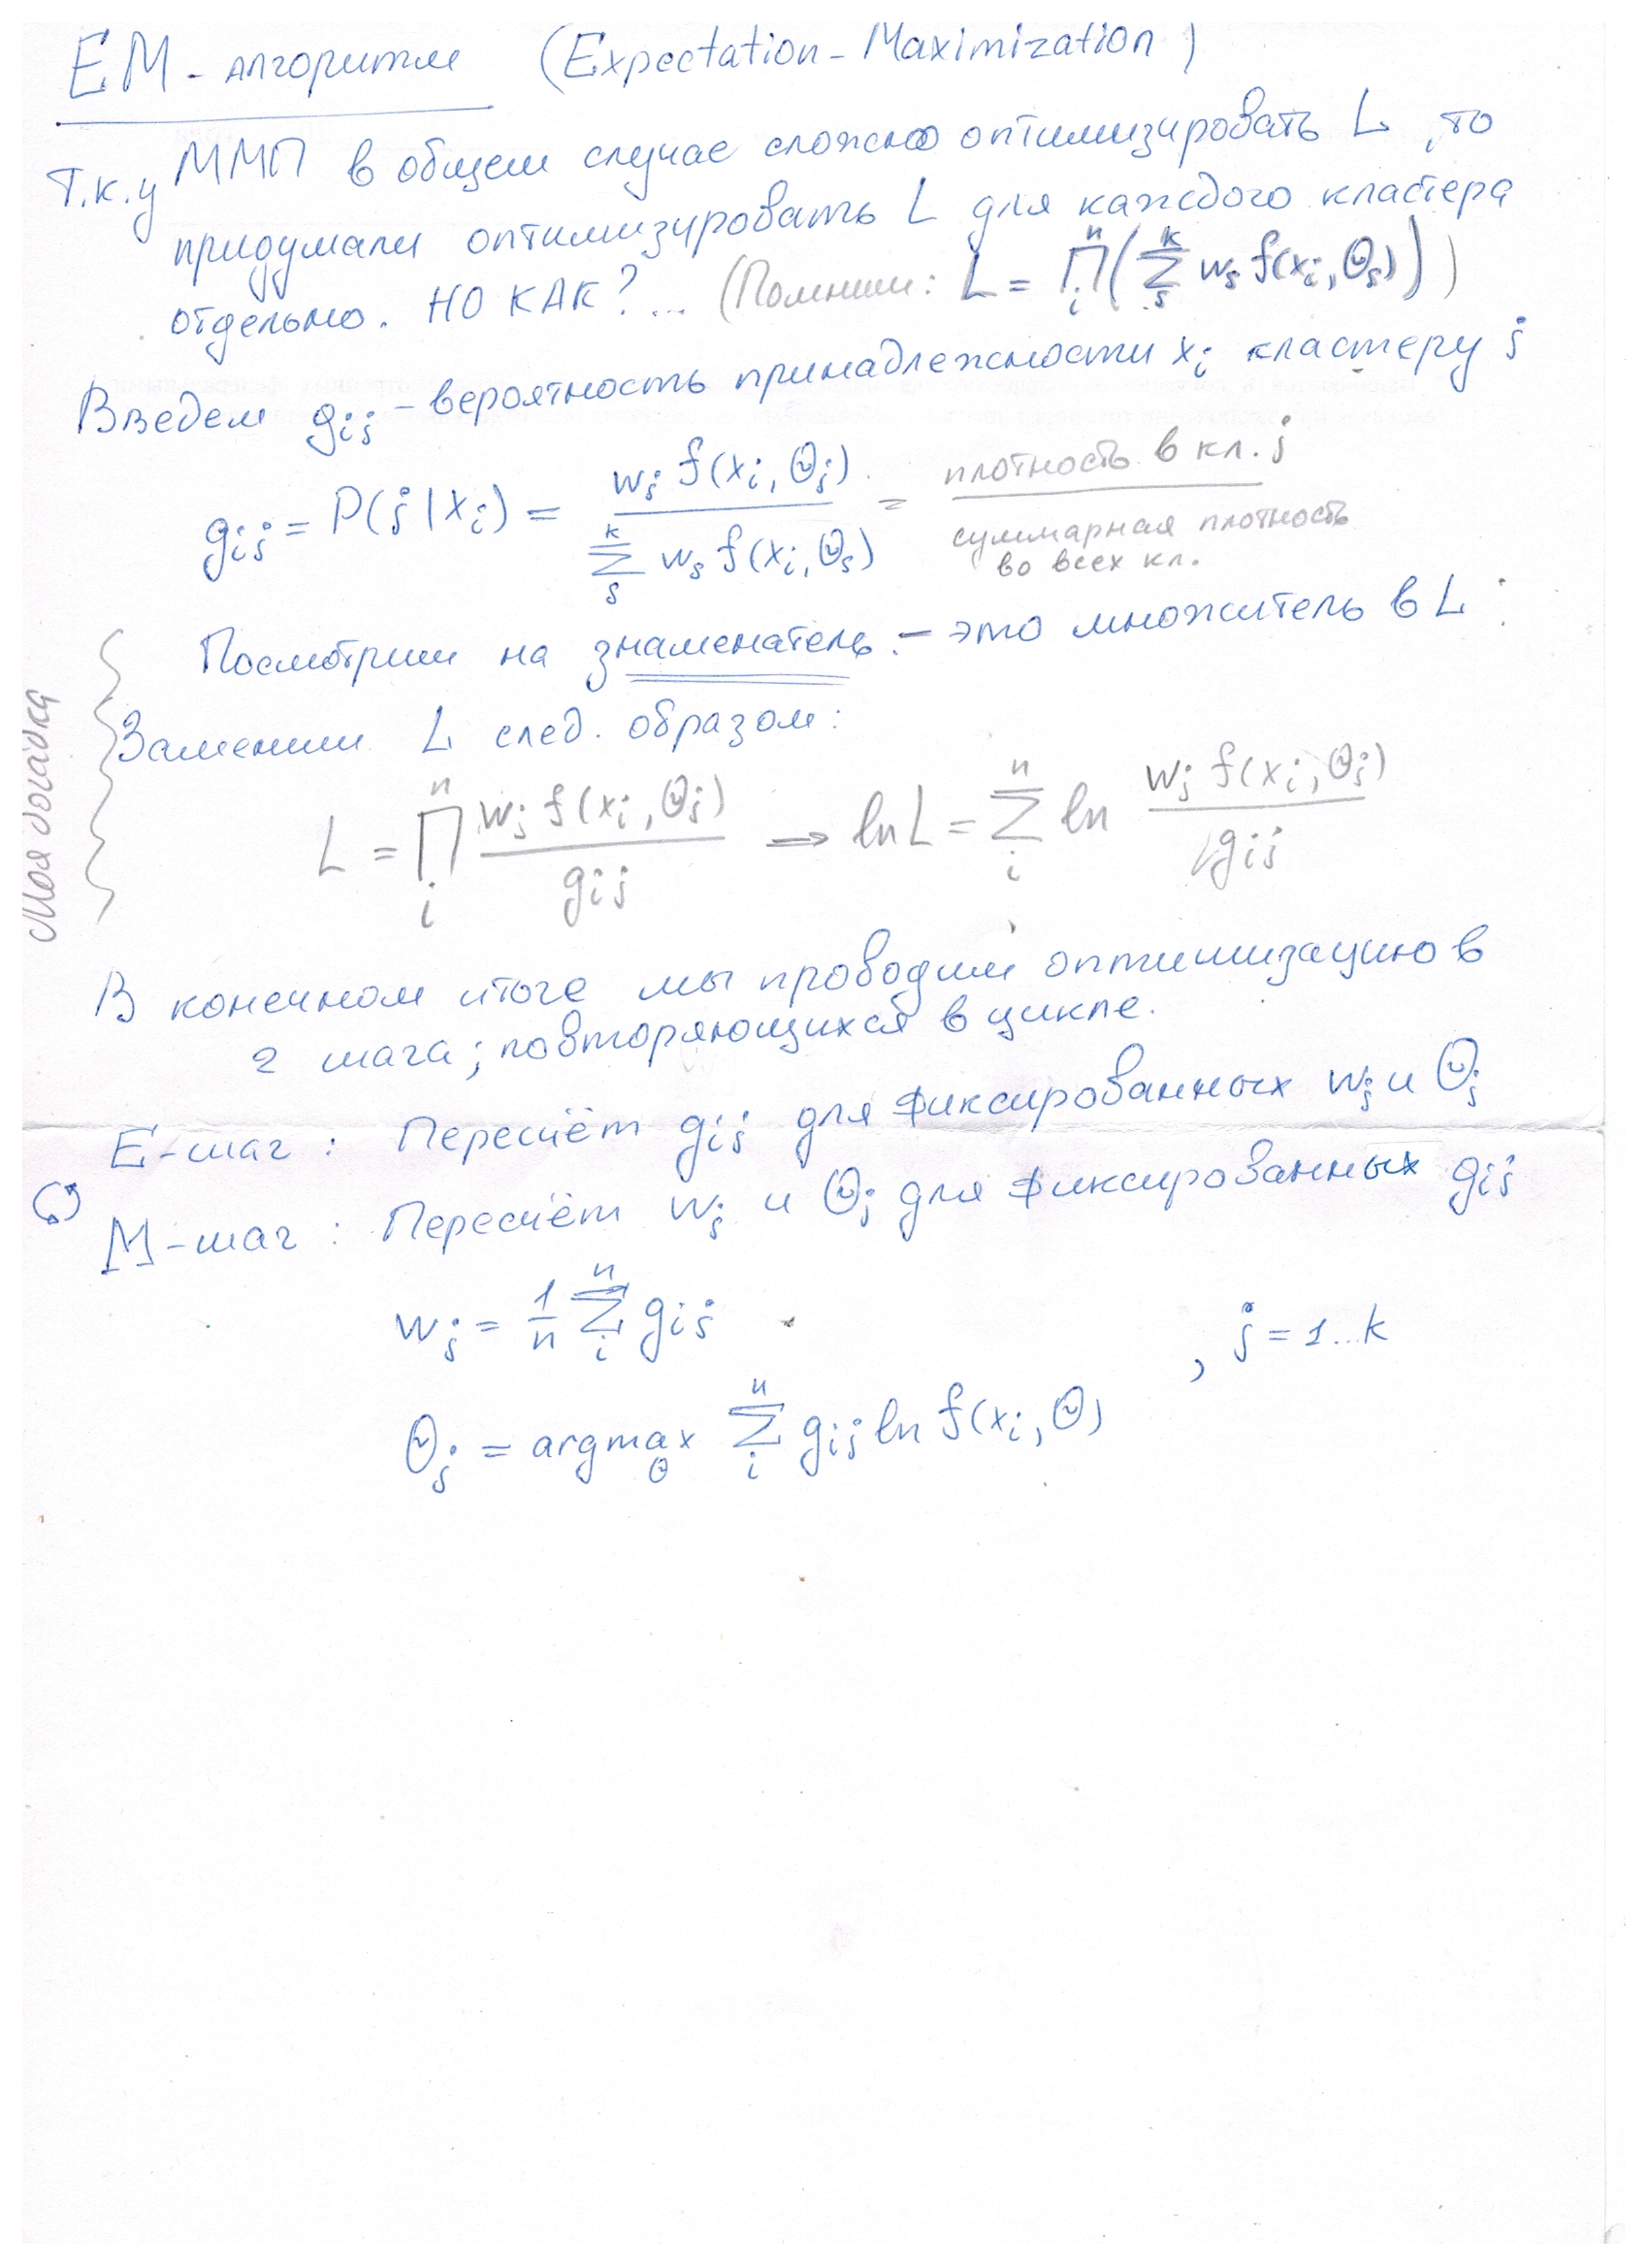 EM - алгоритм (Expectation - Maximization)
Т.к. у ММП в общем случае сложно оптимизировать L, то
придумали оптимизировать L для каждого кластера
отдельно. НО КАК?... (Помним: L = ∏ᵢⁿ (∑ₛᵏ wₛ f(xᵢ, Θₛ)))
Введем gᵢⱼ - вероятность принадлежности xᵢ кластеру j
gᵢⱼ = P(j | xᵢ) = wⱼ f(xᵢ, Θⱼ) / ∑ₛᵏ wₛ f(xᵢ, Θₛ) = плотность в кл. j / суммарная плотность во всех кл.
Моя догадка
Посмотрим на знаменатель. - это множитель в L:
Заменим L след. образом:
L = ∏ᵢⁿ wⱼ f(xᵢ, Θⱼ) / gᵢⱼ → ln L = ∑ᵢⁿ ln wⱼ f(xᵢ, Θⱼ) / gᵢⱼ
В конечном итоге мы проводим оптимизацию в
2 шага, повторяющихся в цикле.
E-шаг: Пересчёт gᵢⱼ для фиксированных wⱼ и Θⱼ
M-шаг: Пересчёт wⱼ и Θⱼ для фиксированных gᵢⱼ
wⱼ = 1/n ∑ᵢⁿ gᵢⱼ
, j = 1...k
Θⱼ = argmax_Θ ∑ᵢⁿ gᵢⱼ ln f(xᵢ, Θ)